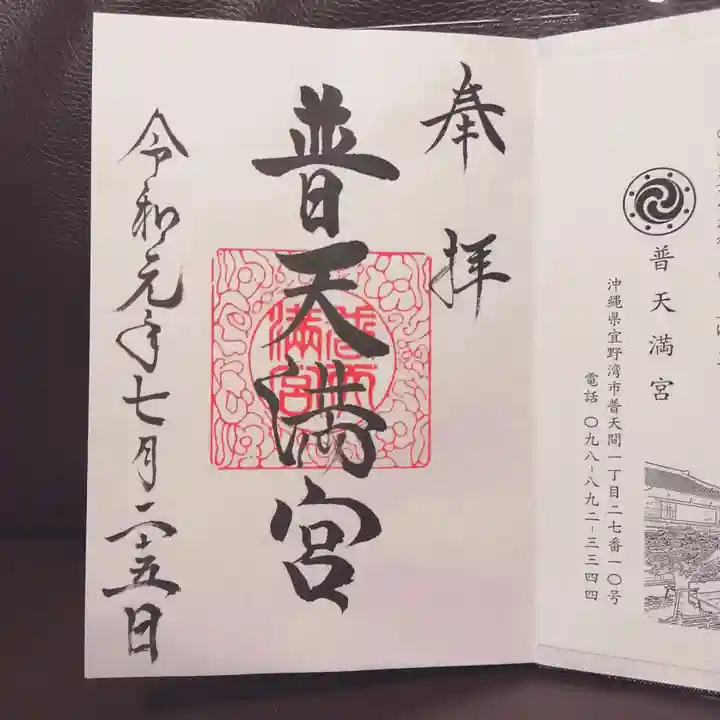 普天満宮
沖縄県宜野湾市普天間一丁目二七番一〇号
電話 〇九八-八九二-三三四四
奉拝
普天満宮
令和元年七月二十五日
普天満宮